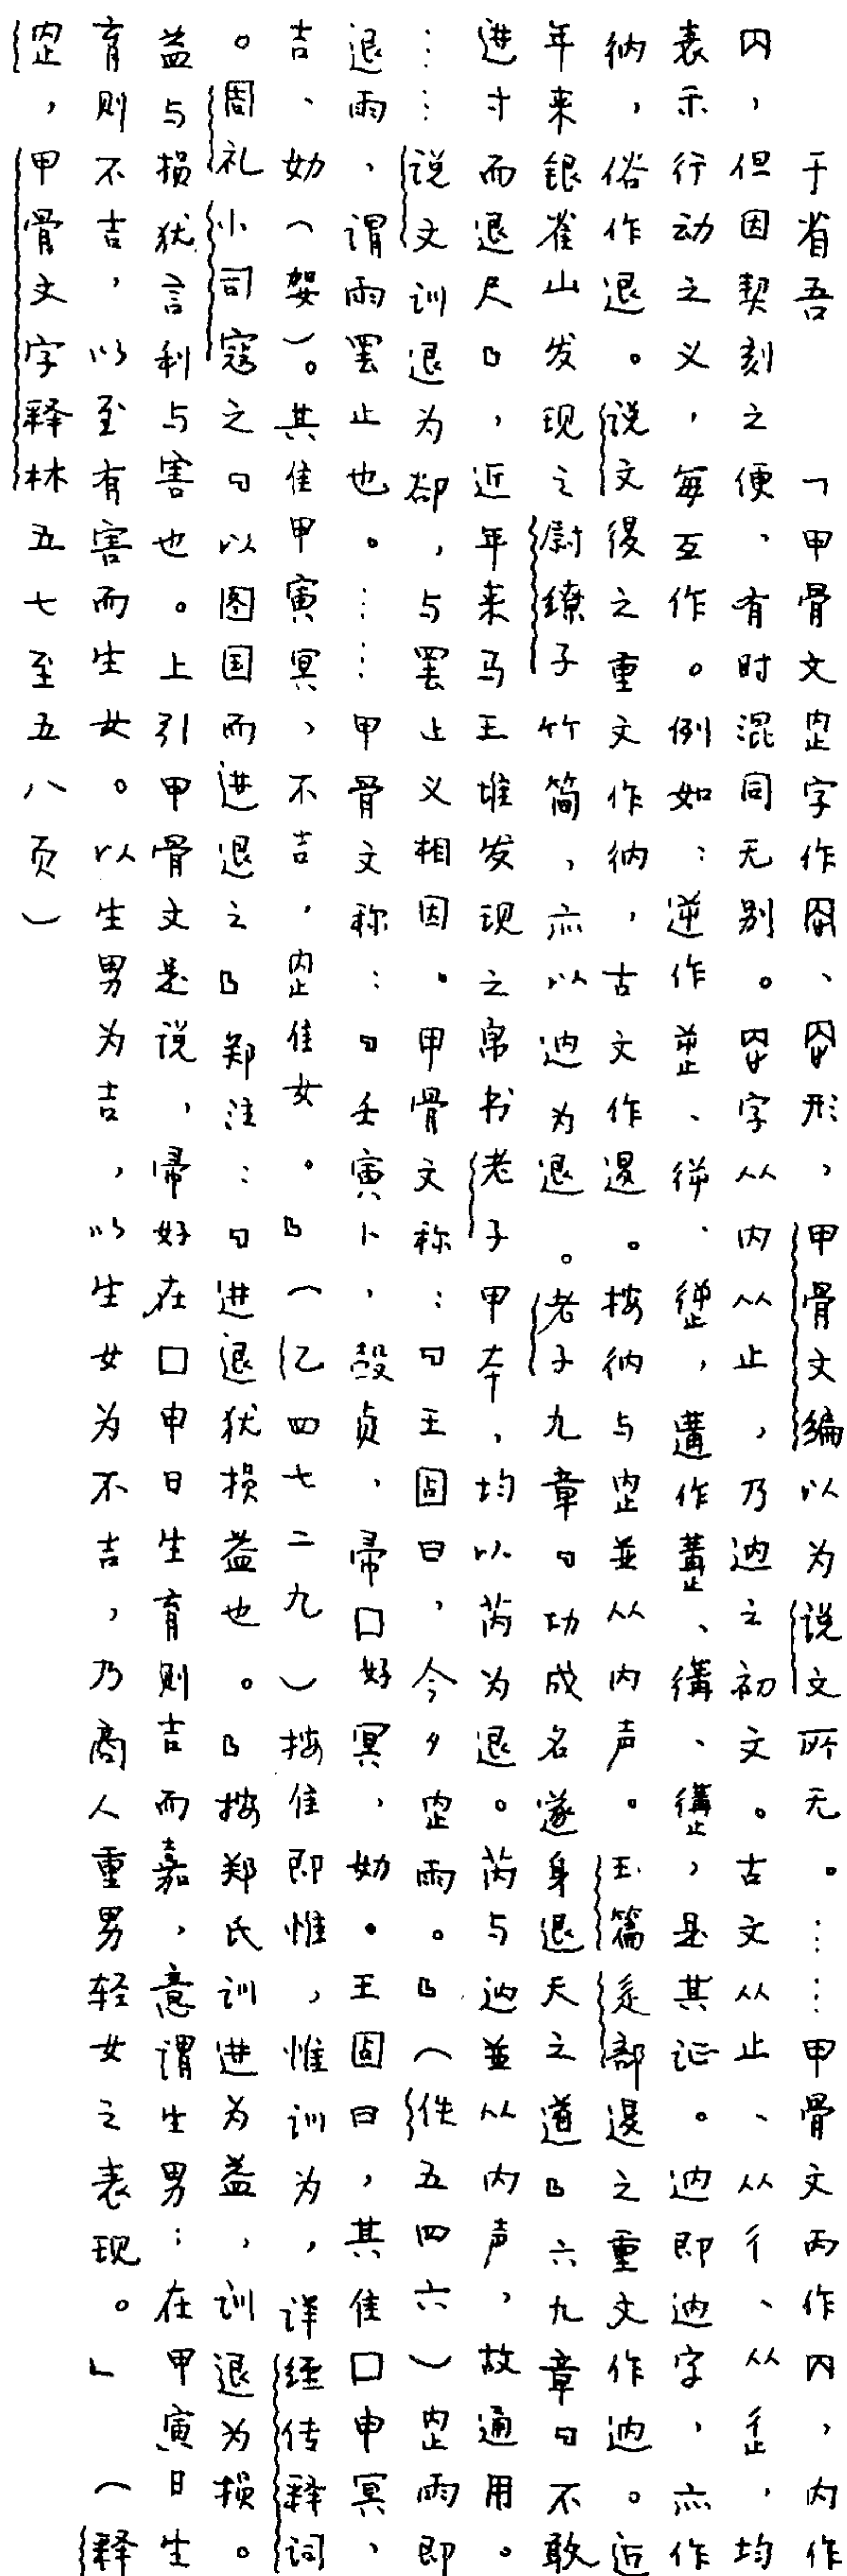 于省吾　「甲骨文⿱内止字作、形，甲骨文编以为说文所无。……甲骨文丙作内，内作
内，但因契刻之便、有时混同无别。⿱内止字从内从止，乃⿺辶内之初文。古文从止、从彳、从⿰彳止，均
表示行动之义，每互作。例如：逆作⿱屰止、⿰彳屰、，遘作⿱冓止、⿰彳冓、，是其证。⿺辶内即⿺辶内字，亦作
⿰彳内，俗作退。说文復之重文作⿰彳内，古文作退。按⿰彳内与⿱内止並从内声。玉篇辵部退之重文作⿺辶内。近
年来银雀山发现之尉缭子竹简，亦以⿺辶内为退。老子九章『功成名遂身退天之道』六九章『不敢
进寸而退尺』，近年来马王堆发现之帛书老子甲本，均以芮为退。芮与⿺辶内並从内声，故通用。
……说文训退为却，与罢止义相因。甲骨文称：『王固曰，今夕⿱内止雨。』（佚五四六）⿱内止雨即
退雨，谓雨罢止也。……甲骨文称：『壬寅卜，㱿贞，帚口好冥，㚰。王固曰，其隹口申冥、
吉、㚰（妿）。其隹甲寅冥，不吉，⿱内止隹女。』（乙四七二九）按隹即惟，惟训为，详经传释词
。周礼小司寇之『以图国而进退之』郑注：『进退犹损益也。』按郑氏训进为益，训退为损。
益与损犹言利与害也。上引甲骨文是说，帚好在口申日生育则吉而嘉，意谓生男；在甲寅日生
育则不吉，以至有害而生女。以生男为吉，以生女为不吉，乃商人重男轻女之表现。」（释
⿱内止，甲骨文字释林五七至五八页）